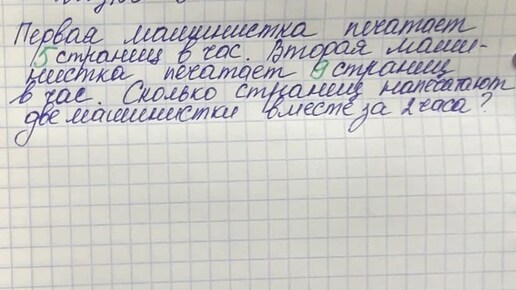 Первая машинистка печатает
5 страниц в час. Вторая маши-
нистка печатает 9 страниц
в час. Сколько страниц напечатают
две машинистки вместе за 2 часа?